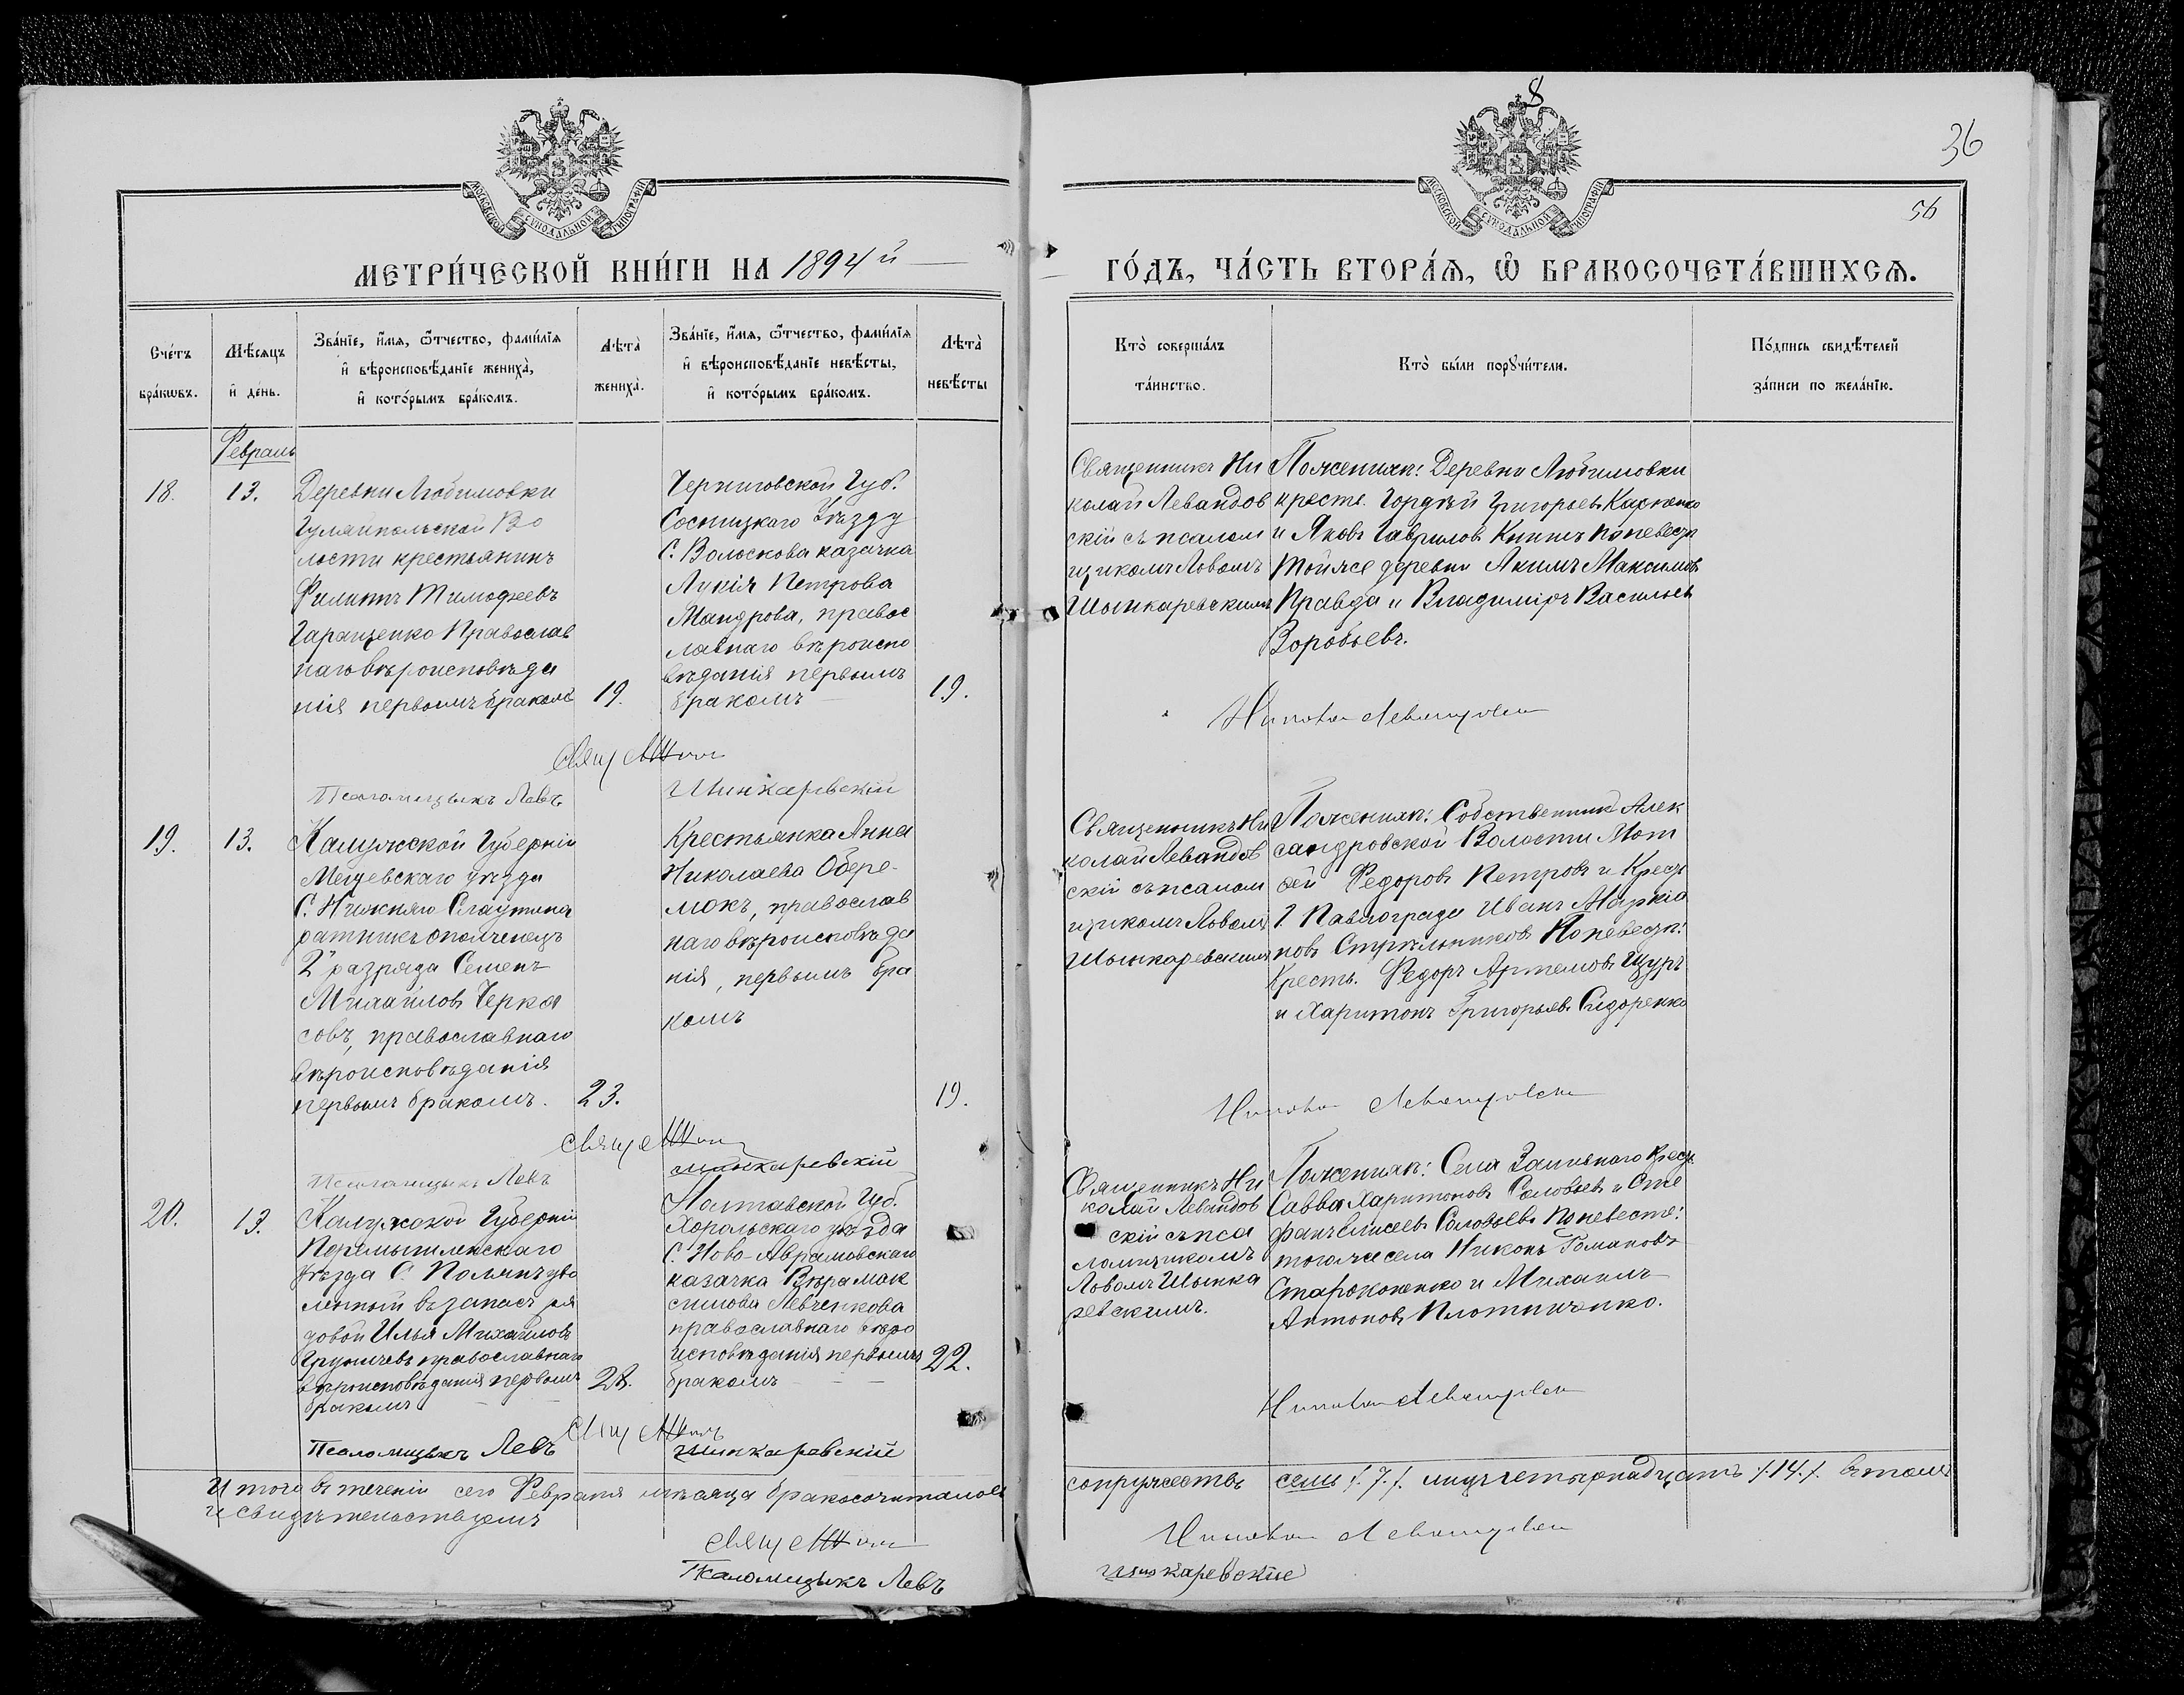 8
36
56
МОСКОВСКОЙ СУНОДАЛЬНОЙ ТИПОГРАФІИ
МОСКОВСКОЙ СУНОДАЛЬНОЙ ТИПОГРАФІИ
МЕТРИ́ЧЕСКОЙ КНИ́ГИ НА 1894 й
ГО́ДЪ, ЧА́СТЬ ВТОРА́Ѧ, Ѽ БРАКОСОЧЕТА́ВШИХСѦ.
Сче́тъ бра́кѡвъ.
Мѣ́сѧцъ и҆ де́нь.
Зва́нїе, и҆́мѧ, ѻ҆́тчество, фами́лїѧ
и҆ вѣроисповѣ́данїе жениха̀,
и҆ кото́рымъ бра́комъ.
Лѣта̀ жениха̀.
Зва́нїе, и҆́мѧ, ѻ҆́тчество, фами́лїѧ
и҆ вѣроисповѣ́данїе невѣ́сты,
и҆ кото́рымъ бра́комъ.
Лѣта̀ невѣ́сты
Кто̀ соверша́лъ
та́инство.
Кто̀ бы́ли порꙋчи́тели.
По́дпись свидѣ́телей
за́писи по жела́нїю.
Февраль
18.
13.
Деревни Любимовки
Гуляйпольской Во
лости крестьянинъ
Филиппъ Тимофеевъ
Гаращенко Православ
наго вѣроисповѣда
нія первымъ бракомъ
19.
Черниговской Губ.
Сосницкаго Уѣзду
С. Волоскова казачка
Лукія Петрова
Мандрова, правос
лавнаго вѣроиспо
вѣданія первымъ
бракомъ
19.
Священникъ Ни
колай Левандов
скій съ псалом
щикомъ Львомъ
Шынкаревскимъ
По женихѣ: Деревни Любимовки
кресть. Гордѣй Григорьевъ Кахненко
и Яковъ Гавриловъ Книшъ по невестѣ
Тойже деревни Якимъ Максимовъ
Правда и Владиміръ Васильевъ
Воробьевъ.
Псаломщыкъ Левъ
Шинкаревскій
19.
13.
Калужской Губерніи
Мещевскаго уѣзда
С. Нижняго
ратникъ ополченецъ
2 разряда Семенъ
Михайловъ Черка
совъ, православнаго
вѣроисповѣданія
первымъ бракомъ.
23.
Крестьянка Анна
Николаева Обере-
мокъ, православ
наго вѣроисповѣда
нія, первымъ бра
комъ
19.
Священникъ Ни
колай Левандов
скій съ псалом
щикомъ Львомъ
Шынкаревскимъ
По женихѣ: Собственник Алек
сандровской Волости Мот
фей Федоровъ Петровъ и Крест.
Г. Павлограда Иванъ Маркіа
новъ Стрѣльниковъ По невесте:
Кресть. Федоръ Артемовъ Щуръ
и Харитонъ Григорьевъ Сидоренко
Псаломщыкъ Левъ
Шинкаревскій
20.
13.
Калужской Губерніи
Перемышленскаго
уѣзда С. Полянъ уво
лечный въ запасъ ря
довой Илья Михайловъ
православнаго
вѣроисповѣданія первымъ
бракомъ
28.
Полтавской Губ.
Хорольскаго уѣзда
С. Ново-Аврамовскаго
казачка Вѣра Мак
симова Левченкова
православнаго вѣро
исповѣданія первымъ
бракомъ
22.
Священникъ Ни
колай Левандов
скій съ пса
ломщикомъ
Львомъ Шынка
ревскимъ.
По женихѣ: Села Крест.
Савва Харитоновъ Соловьевъ и Сте
фанъ Елисеевъ Соловьевъ По невесте:
тогоже села Никонъ Романовъ
Старокоженко и Михаилъ
Антоновъ Плотниченко.
Псаломщыкъ Левъ
Шинкаревскій
Итого въ теченіи сего Февраля мѣсяца бракосочиталось
сопружествъ семь /.7./. лицъ четырнадцать /.14./. въ томъ
и свидѣтельствуемъ
Псаломщыкъ Левъ
Шинкаревскій